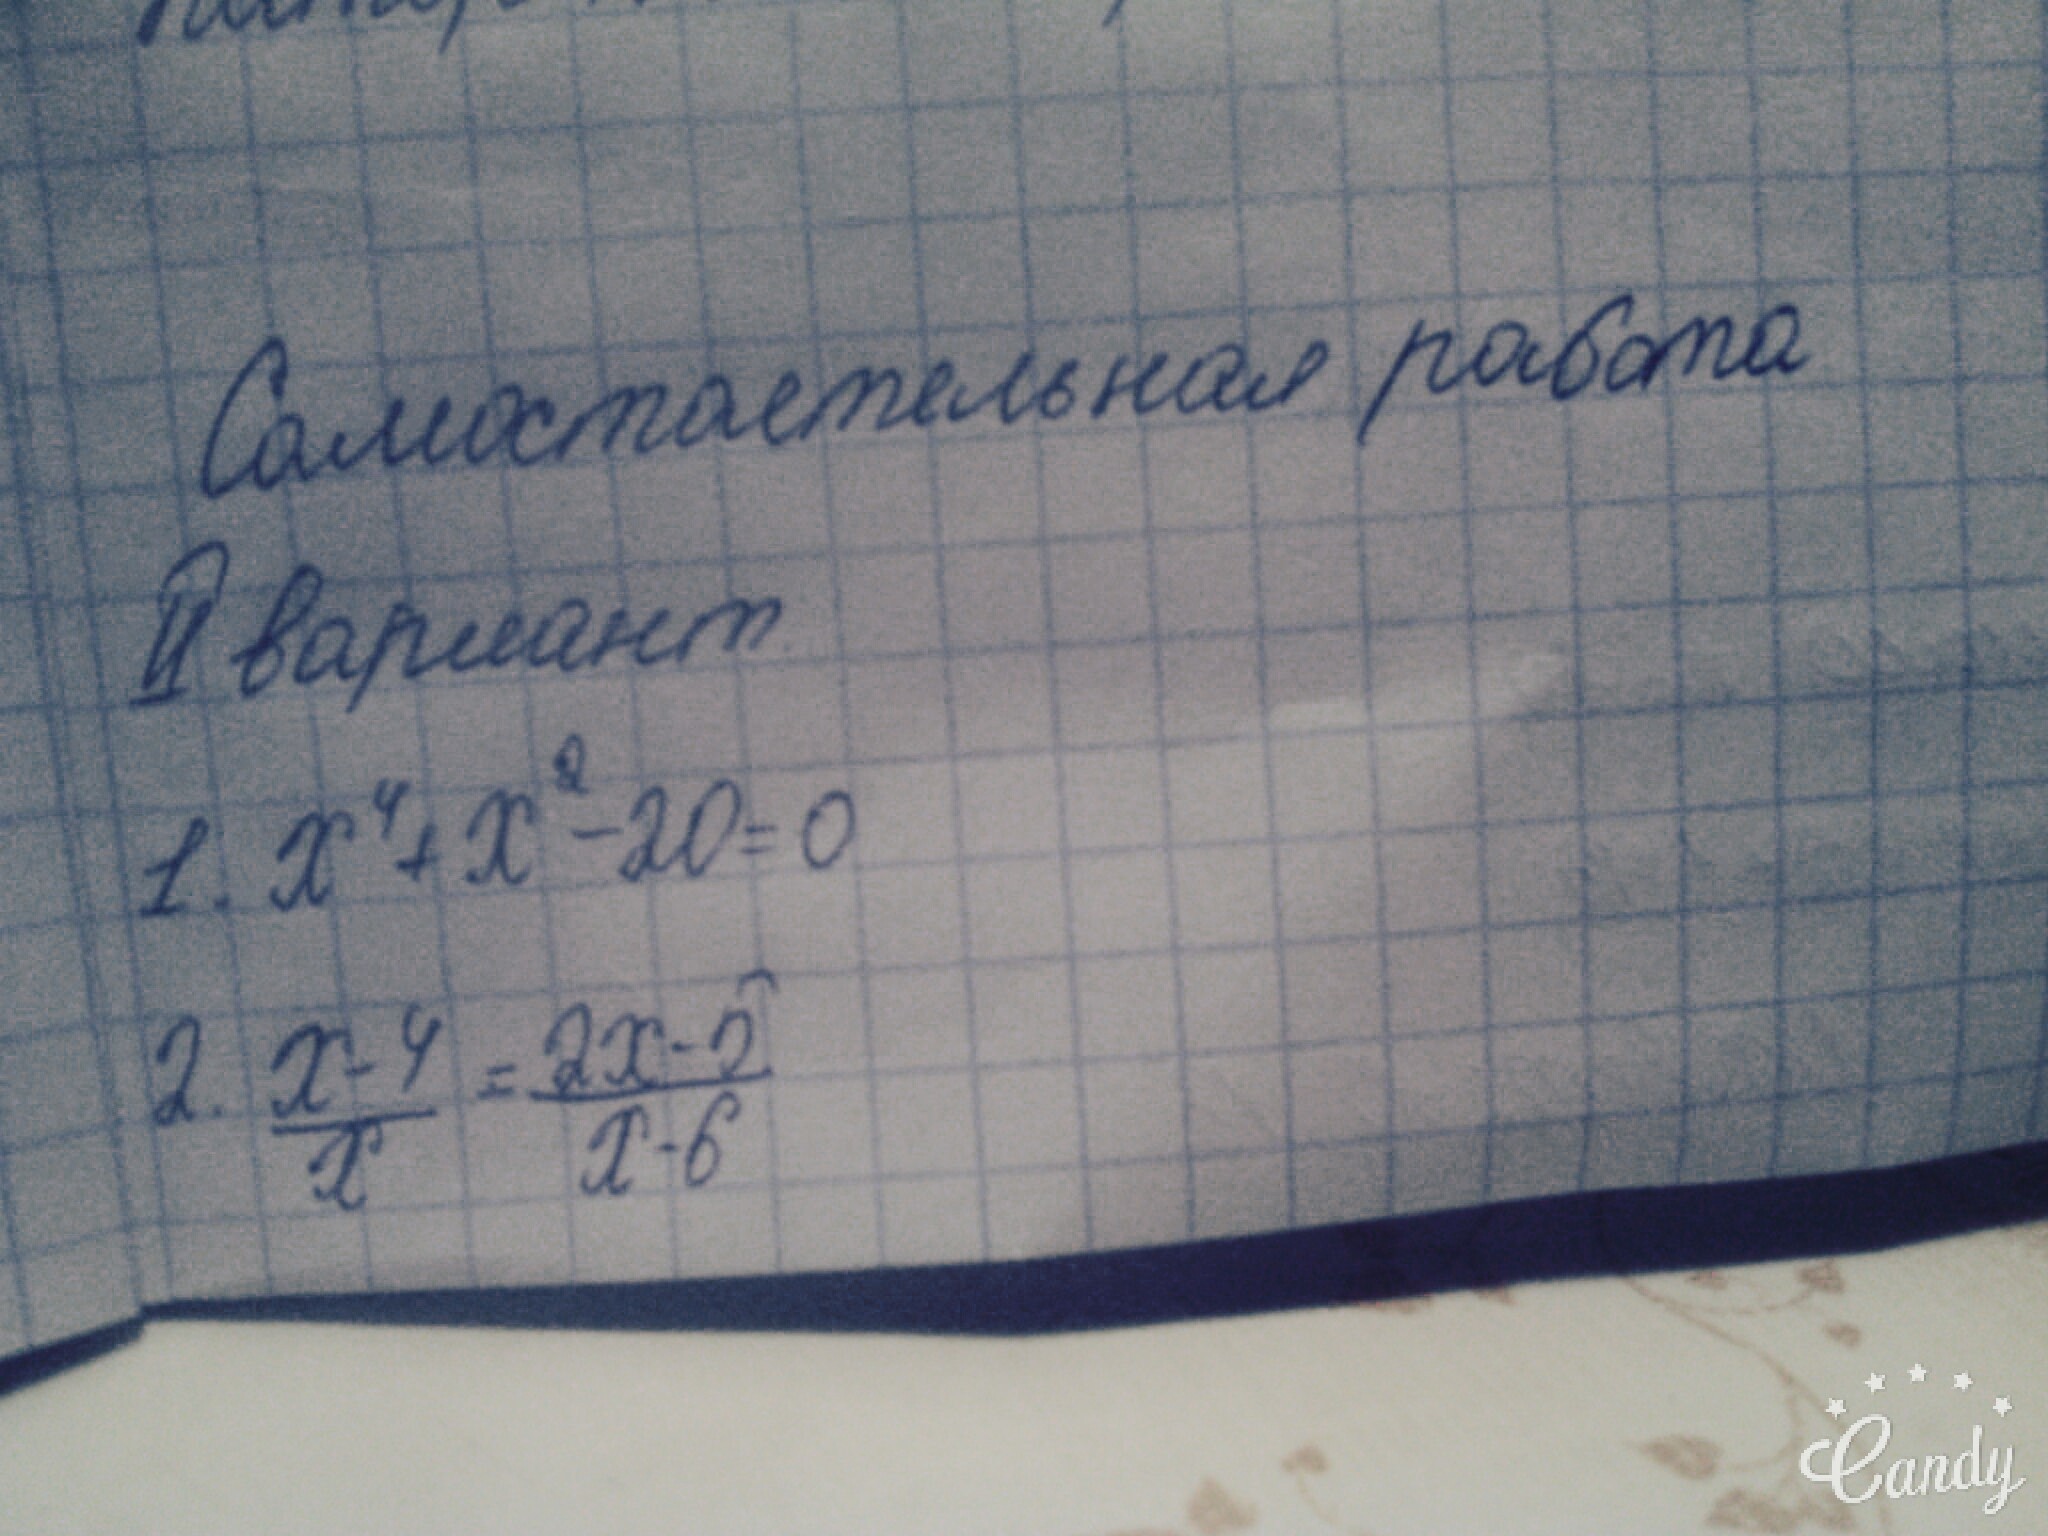 Самостаетельная работа
II вариант
1. x⁴+x²-20=0
2. x-4/x = 2x-5/x-6
Candy